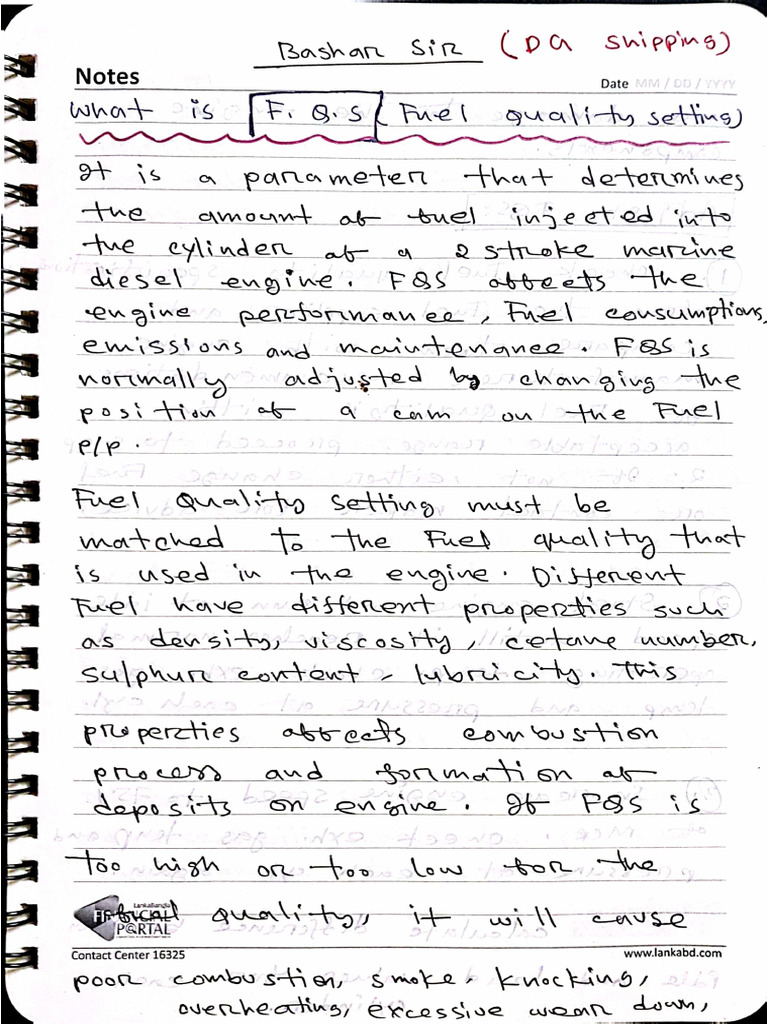 Bashar Sir (DA Shipping)
Notes
Date MM / DD / YYYY
What is F.Q.S (Fuel Quality setting)
It is a parameter that determines
the amount of fuel injected into
the cylinder of a 2 stroke marine
diesel engine. FQS affects the
engine performance, Fuel consumptions,
emissions and maintenance. FQS is
normally adjusted by changing the
position of a cam on the Fuel
P/P.
Fuel Quality setting must be
matched to the Fuel quality that
is used in the engine. Different
Fuel have different properties such
as density, viscosity, cetane number,
sulphur content, lubricity. This
properties affects combustion
process and formation of
deposits on engine. If FQS is
too high or too low for the
quality, it will cause
LankaBangla
FINANCIAL
PORTAL
Contact Center 16325
www.lankabd.com
poor combustion, smoke, knocking,
overheating, excessive wear down,